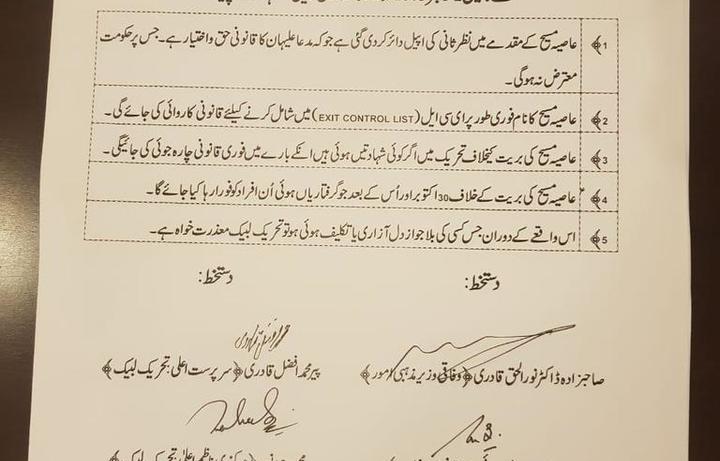 1﴾ عاصیہ مسیح کے مقدمے میں نظر ثانی کی اپیل دائر کر دی گئی ہے جو کہ مدعا علیہان کا قانونی حق و اختیار ہے۔ جس پر حکومت
معترض نہ ہوگی۔
2﴾ عاصیہ مسیح کا نام فوری طور پر ای سی ایل (EXIT CONTROL LIST) میں شامل کرنے کیلئے قانونی کاروائی کی جائے گی۔
3﴾ عاصیہ مسیح کی بریت کیخلاف تحریک میں اگر کوئی شہادتیں ہوئی ہیں انکے بارے میں فوری قانونی چارہ جوئی کی جائیگی۔
4﴾ عاصیہ مسیح کی بریت کے خلاف 30 اکتوبر اور اُس کے بعد جو گرفتاریاں ہوئی اُن افراد کو فوراً رہا کیا جائے گا۔
5﴾ اس واقعے کے دوران جس کسی کی بلا جواز دل آزاری یا تکلیف ہوئی ہو تو تحریک لبیک معذرت خواہ ہے۔
دستخط: دستخط:
صاحبزادہ ڈاکٹر نور الحق قادری ﴿وفاقی وزیر مذہبی امور﴾ پیر محمد افضل قادری ﴿سرپرست اعلیٰ تحریک لبیک﴾